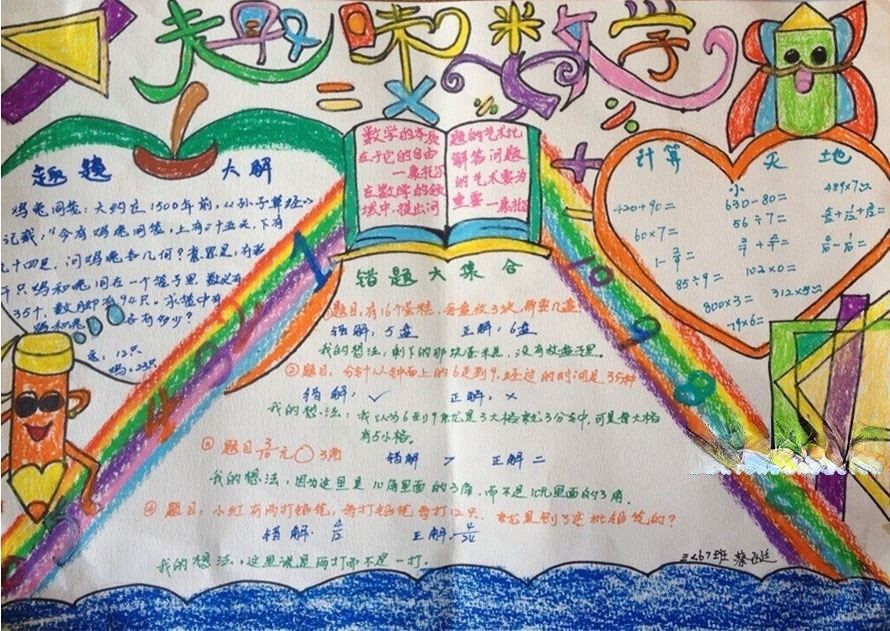 趣味数学
= × % ÷
+
-
数学的本质
在于它的自由
—康托尔
在数学的领
域中,提出问
题的艺术比
解答问题
的艺术更为
重要 —康托尔
趣题 大解
鸡兔同笼:大约在1500年前,《孙子算经》
记载,“今有鸡兔同笼,上有三十五头,下有
九十四足,问鸡兔各几何?意思是,有若
干只鸡和兔同在一个笼子里,数头有
35个,数脚有94只,求笼中有
鸡和兔各有多少?
兔:12只
鸡:23只
计算小天地
420+90=
60×7=
85÷9=
800×3=
79×6=
630-80=
56÷7=
102×0=
312×5≈
489×7≈
1 2 3 4
10 9 8
错题大集合
①题目,有16个蛋糕,每盘放3块,那要几盘?
错解:5盘 正解:6盘
我的想法:剩下的那块蛋糕,没有放盘子里。
②题目,分针从钟面上的6走到9,经过的时间是3分钟
错解:✓ 正解:×
我的想法:我以为6到9就是3大格就3分钟,可是每大格
有5小格。
③题目 3/10元○3角
错解 > 正解 =
我的想法,因为这里是10角里面的3角,而不是10元里面的3角。
④题目,小红有两打铅笔,每打铅笔每打12只.
错解: 4/12 正解: 4/24
我的想法,这里说是两打而不是一打。
三<6>班